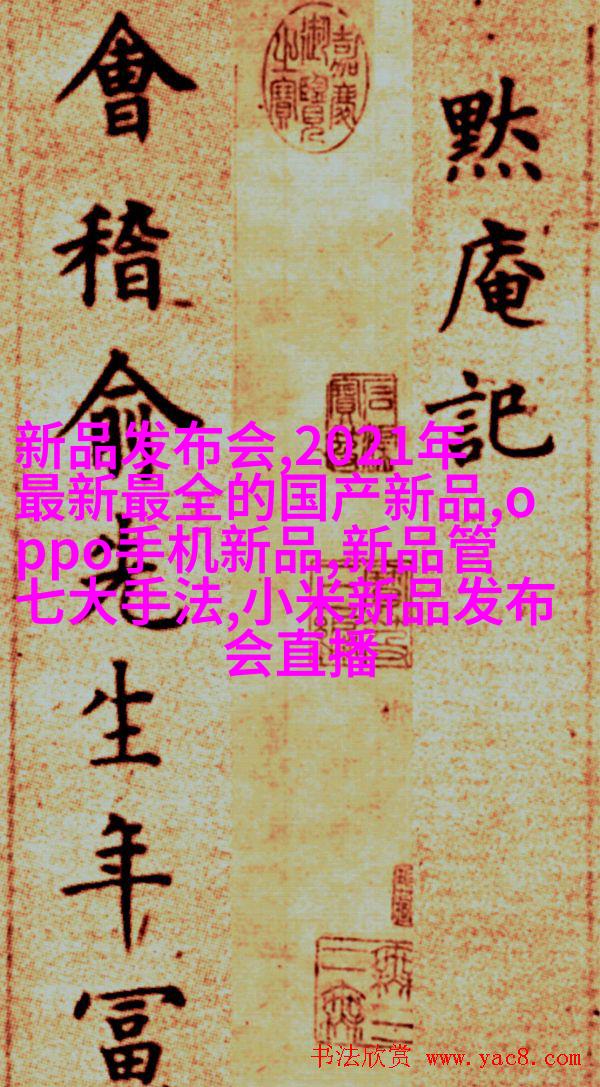 黙庵記
嘉慶御覽之寶
石渠寶笈
會稽俞先生年冨
新品发布会,2021年
最新最全的国产新品,o
ppo手机新品,新品管
七大手法,小米新品发布
会直播
书法欣赏 www.yac8.com